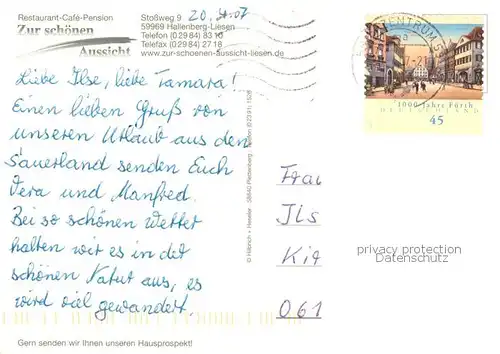 Restaurant-Café-Pension
Zur schönen
Aussicht
Stoßweg 9
59969 Hallenberg-Liesen
Telefon (0 29 84) 83 10
Telefax (0 29 84) 27 18
www.zur-schoenen-aussicht-liesen.de
Liebe Ilse, liebe Tamara!
Einen lieben Gruß von
unseren Urlaub aus den
Sauerland senden Euch
Vera und Manfred.
Bei so schönen Wetter
halten wir es in der
schönen Natur aus, es
wird viel gewandert.
Gern senden wir Ihnen unseren Hausprospekt!
58840 Plettenberg
1000 Jahre Fürth
DEUTSCHLAND
45
Frau
Ils
061
privacy protection
Datenschutz